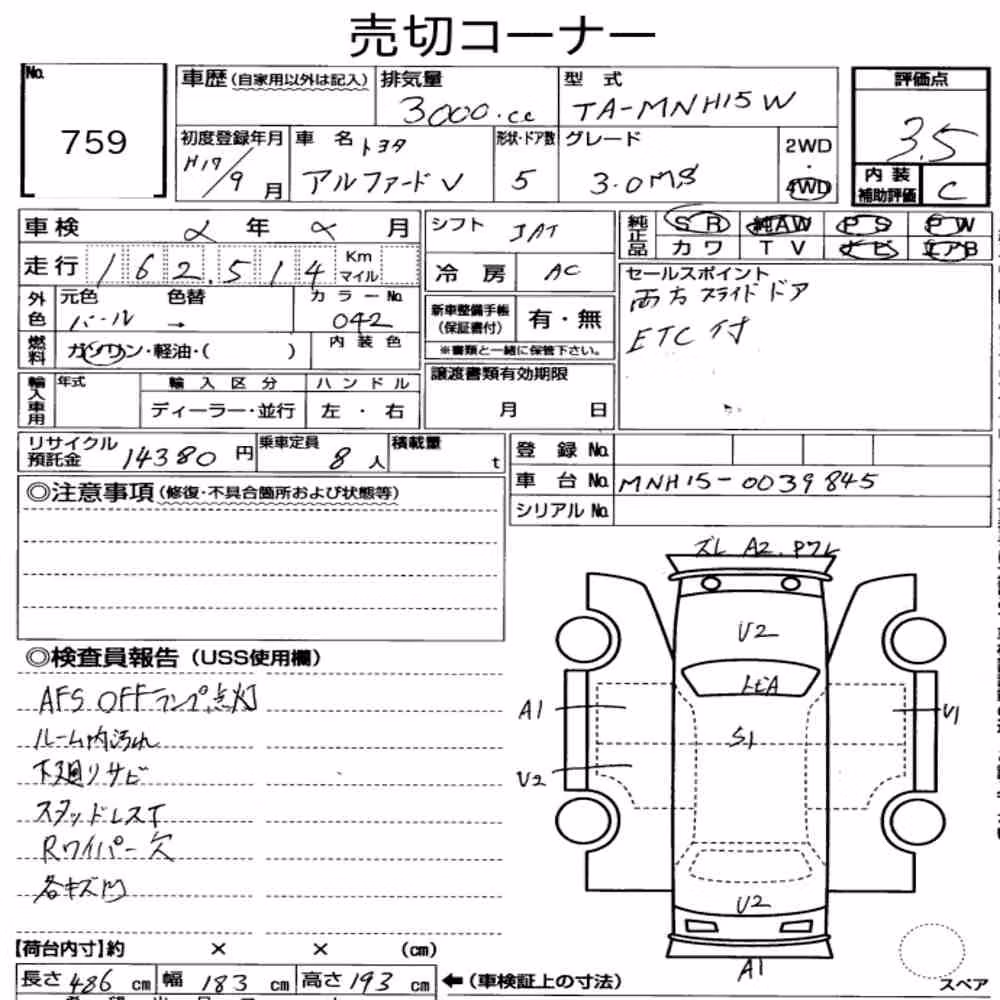 売切コーナー
No.
759
車歴(自家用以外は記入)
排気量
3000.cc
型式
TA-MNH15W
評価点
3.5
初度登録年月
H17/9月
車名
トヨタ
アルファードV
形状・ドア数
5
グレード
3.0MS
2WD
・
4WD
内装
補助評価
C
車検
年
月
走行
162,514
Km
マイル
シフト
冷房
AC
純正品
SR
純AW
PS
PW
カワ
TV
ナビ
エアB
セールスポイント
両方スライドドア
ETC付
外色
元色
パール
色替
→
カラーNo.
042
燃料
ガソリン・軽油・( )
内装色
新車整備手帳
(保証書付)
有・無
※書類と一緒に保管下さい。
輸入車用
年式
輸入区分
ディーラー・並行
ハンドル
左・右
譲渡書類有効期限
月 日
リサイクル
預託金
14380円
乗車定員
8人
積載量
t
登録No.
車台No.
MNH15-0039845
シリアルNo.
◎注意事項(修復・不具合箇所および状態等)
◎検査員報告(USS使用欄)
AFS OFFランプ点灯
ルーム内汚れ
下廻りサビ
スタッドレスT
Rワイパー欠
各キズ凹
ズレ A2.PワレU2
トビA
A1
S1
U1
U2
U2
A1
スペア
【荷台内寸】約 × × (cm)
長さ486cm
幅183cm
高さ193cm
←(車検証上の寸法)